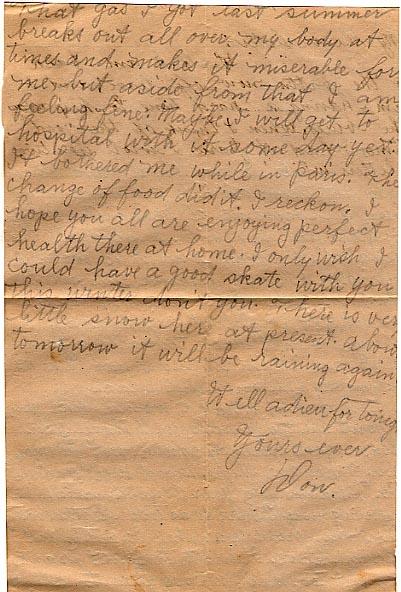 that gas I got last summer
breaks out all over my body at
times and makes it miserable for
me but aside from that I am
feeling fine. Maybe I will get to
hospital with it some day yet.
It bothered me while in Paris. The
change of food did it. I reckon. I
hope you all are enjoying perfect
health there at home. I only wish I
could have a good skate with you
this winter don't you. There is ver
little snow her at present. abou
tomorrow it will be raining again
Well adieu for
Yours ever
Don.